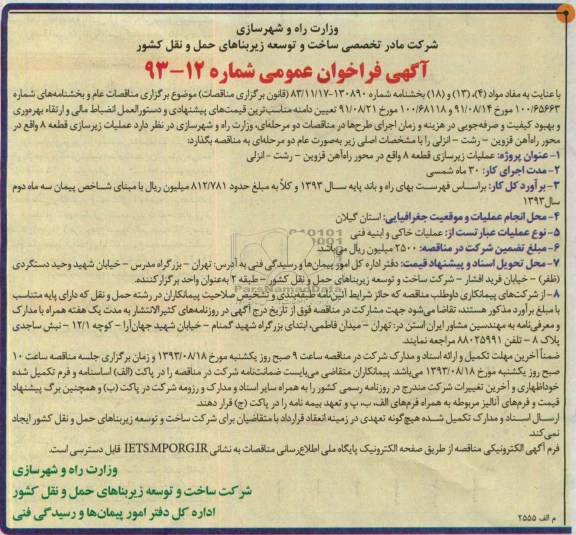 وزارت راه و شهرسازی
شرکت مادر تخصصی ساخت و توسعه زیربناهای حمل و نقل کشور
آگهی فراخوان عمومی شماره ۱۲-۹۳
با عنایت به مفاد مواد (۴)، (۱۳) و (۱۸) بخشنامه شماره ۱۳۰۸۹۰-۸۳/۱۱/۱۷ (قانون برگزاری مناقصات) موضوع برگزاری مناقصات عام و بخشنامه‌های شماره
۱۰۰/۶۵۶۶۳ مورخ ۹۱/۰۸/۱۴ و ۱۰۰/۶۸۱۱۸ مورخ ۹۱/۰۸/۲۱ تعیین دامنه مناسب‌ترین قیمت‌های پیشنهادی و دستورالعمل انضباط مالی و ارتقاء بهره‌وری
و بهبود کیفیت و صرفه‌جویی در هزینه و زمان اجرای طرح‌ها در مناقصات دو مرحله‌ای، وزارت راه و شهرسازی در نظر دارد عملیات زیرسازی قطعه ۸ واقع در
محور راه‌آهن قزوین - رشت - انزلی را با مشخصات اصلی زیر به‌صورت عام دو مرحله‌ای به مناقصه بگذارد:
۱- عنوان پروژه: عملیات زیرسازی قطعه ۸ واقع در محور راه‌آهن قزوین - رشت - انزلی
۲- مدت اجرای کار: ۳۰ ماه شمسی
۳- برآورد کل کار: براساس فهرست بهای راه و باند پایه سال ۱۳۹۳ و کلاً به مبلغ حدود ۸۱۲/۷۸۱ میلیون ریال با مبنای شاخص پیمان سه ماه دوم
سال ۱۳۹۳
۴- محل انجام عملیات و موقعیت جغرافیایی: استان گیلان
۵- نوع عملیات عبارتست از: عملیات خاکی و ابنیه فنی
۶- مبلغ تضمین شرکت در مناقصه: ۲۵۰۰ میلیون ریال می‌باشد.
۷- محل تحویل اسناد و پیشنهاد قیمت: دفتر اداره کل امور پیمان‌ها و رسیدگی فنی به آدرس: تهران - بزرگراه مدرس - خیابان شهید وحید دستگردی
(ظفر) - خیابان فرید افشار - شرکت ساخت و توسعه زیربناهای حمل و نقل کشور - طبقه ۲ به‌عنوان واحد برگزارکننده.
۸- از شرکت‌های پیمانکاری داوطلب مناقصه که حائز شرایط آئین‌نامه طبقه‌بندی و تشخیص صلاحیت پیمانکاران در رشته حمل و نقل که دارای پایه متناسب
با مبلغ برآورد مذکور هستند، تقاضا می‌شود جهت مشارکت در مناقصه فوق از تاریخ درج آگهی در روزنامه‌های کثیرالانتشار به مدت یک هفته همراه با مدارک
و معرفی‌نامه به مهندسین مشاور ایران استن در: تهران - میدان فاطمی، ابتدای بزرگراه شهید گمنام - خیابان شهید جهان‌آرا - کوچه ۱۲/۱ - نبش ساجدی
پلاک ۸ - تلفن ۸۸۰۲۵۹۹۱ مراجعه نمایند.
ضمناً آخرین مهلت تکمیل و ارائه اسناد و مدارک شرکت در مناقصه ساعت ۹ صبح روز یکشنبه مورخ ۱۳۹۳/۰۸/۱۸ و زمان برگزاری جلسه مناقصه ساعت ۱۰
صبح روز یکشنبه مورخ ۱۳۹۳/۰۸/۱۸ می‌باشد. پیمانکاران متقاضی می‌بایست ضمانت‌نامه شرکت در مناقصه را در پاکت (الف) اساسنامه و فرم تکمیل شده
خوداظهاری و آخرین تغییرات شرکت مندرج در روزنامه رسمی کشور را به همراه سایر اسناد و مدارک و رزومه شرکت در پاکت (ب) و همچنین برگ پیشنهاد
قیمت و فرم‌های آنالیز مربوطه به همراه فرم‌های الف، ب، پ و تعهد بیمه نامه را در پاکت (ج) قرار دهند.
ارسال اسناد و مدارک تکمیل شده هیچ‌گونه تعهدی در زمینه انعقاد قرارداد با متقاضیان برای شرکت ساخت و توسعه زیربناهای حمل و نقل کشور ایجاد
نمی‌کند.
فرم آگهی الکترونیکی مناقصه از طریق صفحه الکترونیک پایگاه ملی اطلاع‌رسانی مناقصات به نشانی IETS.MPORG.IR قابل دسترسی است.
وزارت راه و شهرسازی
شرکت ساخت و توسعه زیربناهای حمل و نقل کشور
اداره کل دفتر امور پیمان‌ها و رسیدگی فنی
م الف ۲۵۵۵